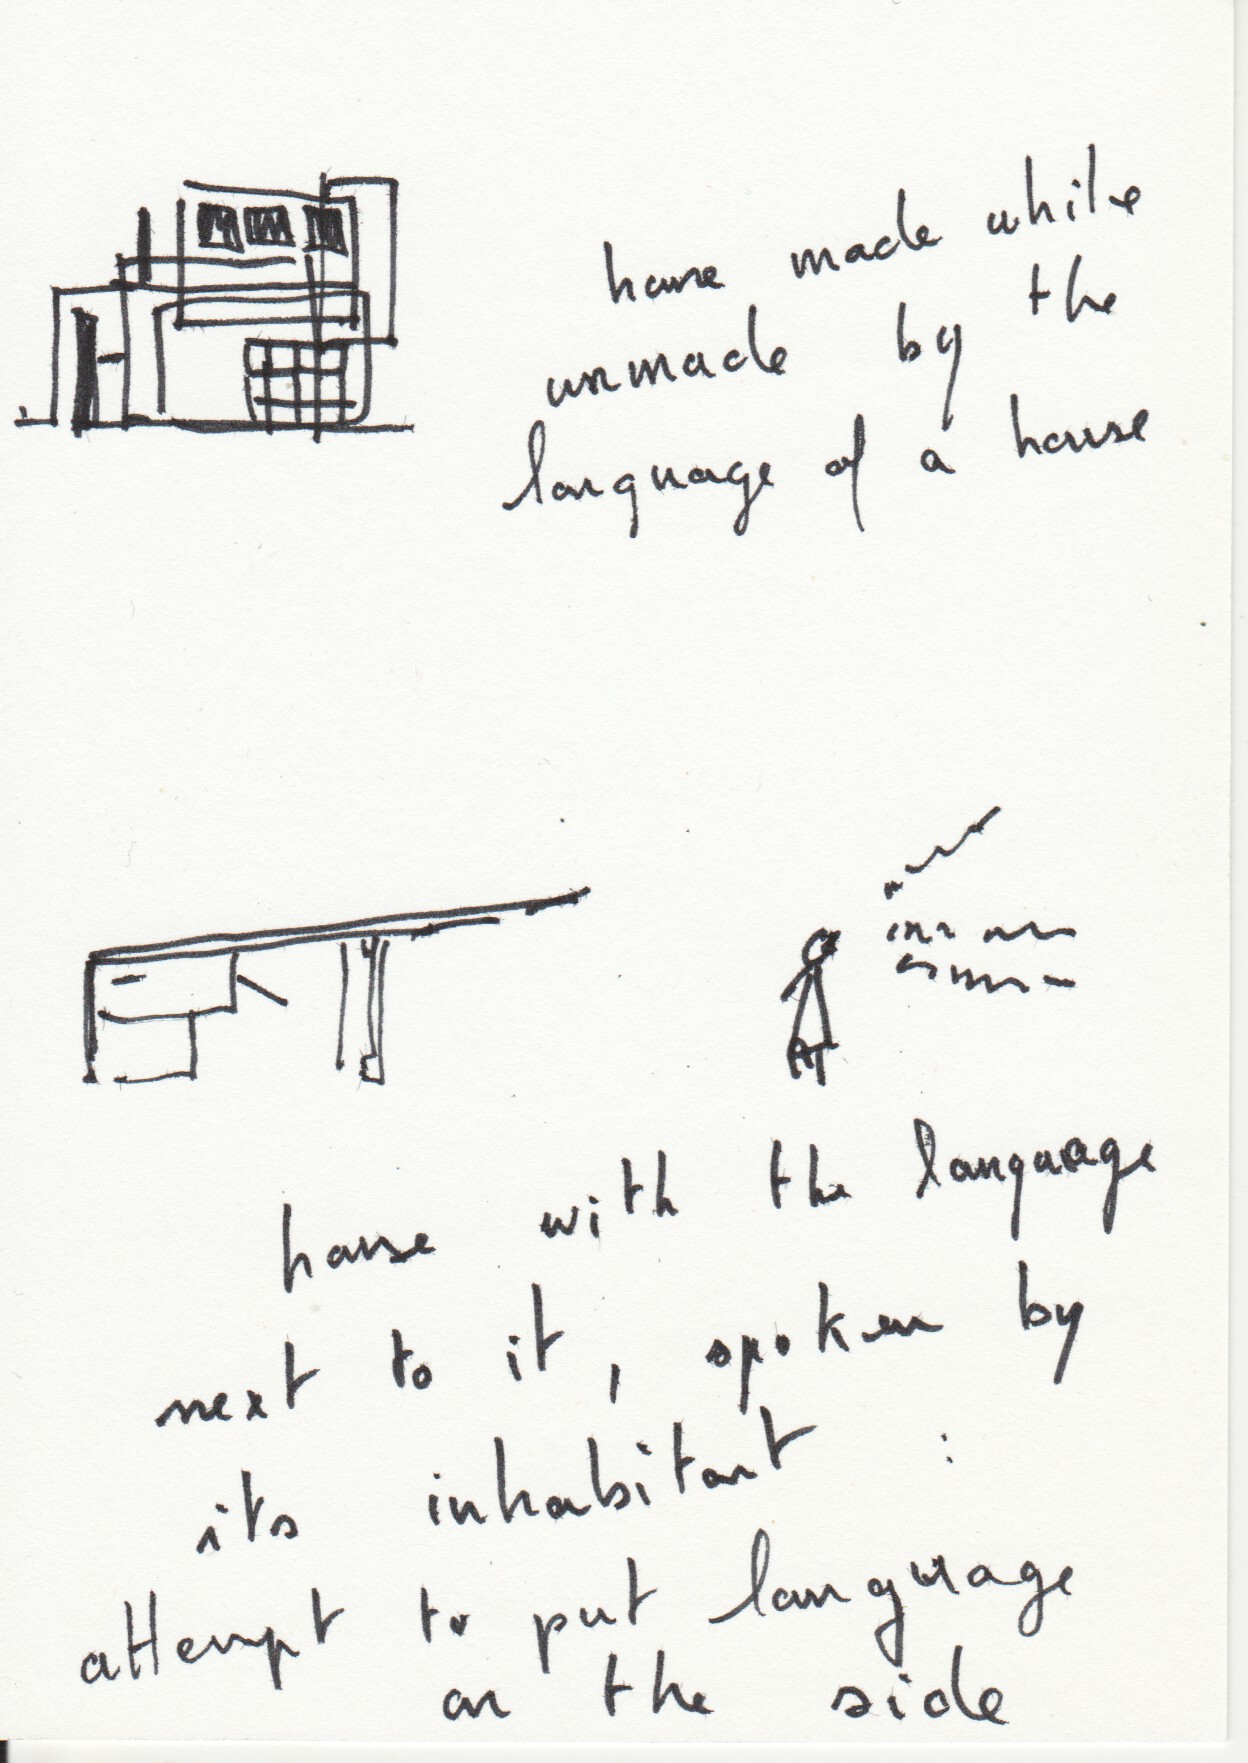 house made while
unmade by the
language of a house
house with the language
next to it, spoken by
its inhabitant :
attempt to put language
on the side